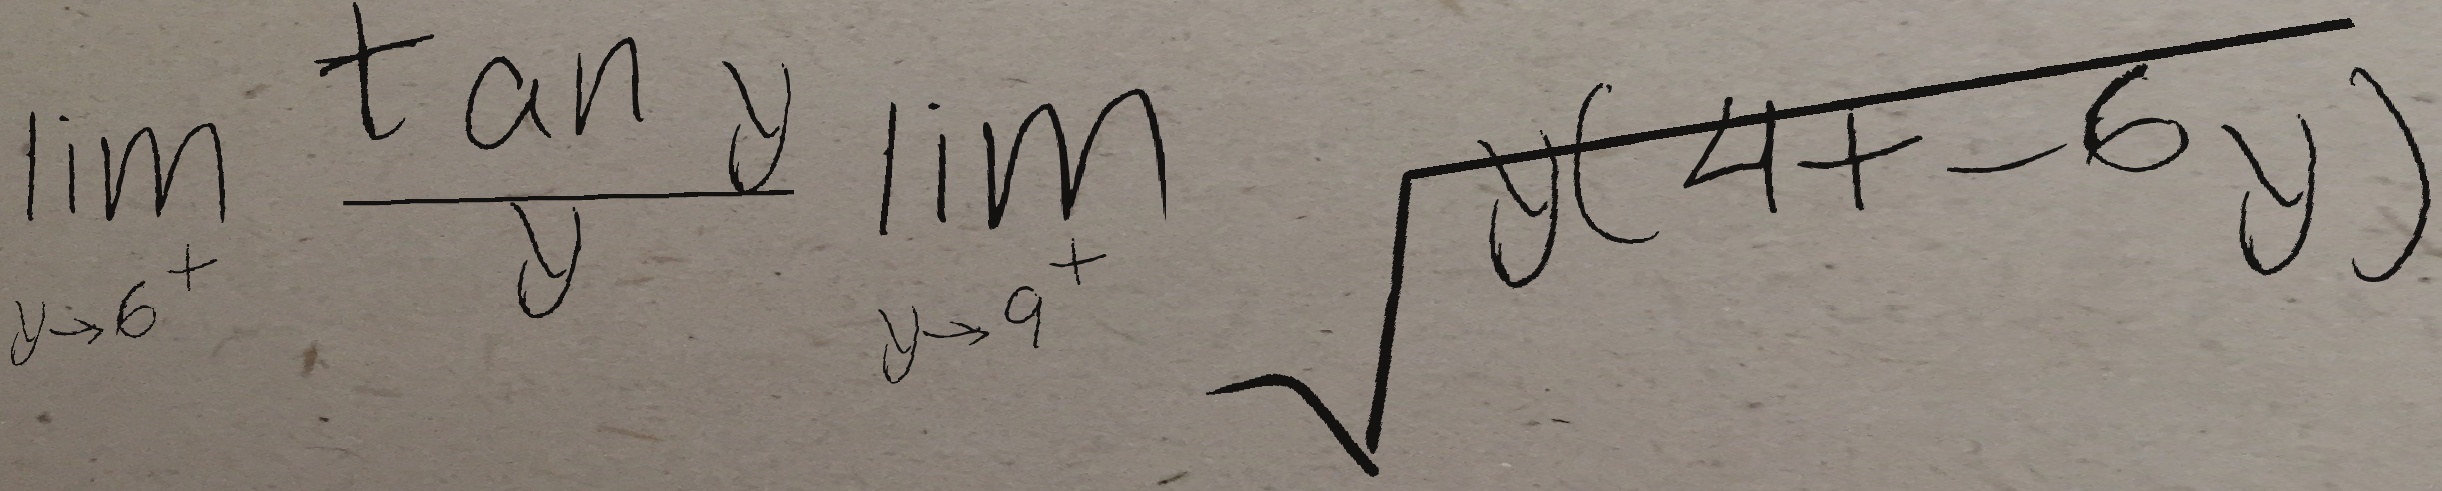 \lim_{y \to 6^+} \frac{\tan y}{y} \lim_{y \to 9^+} \sqrt{y(4+-6y)}